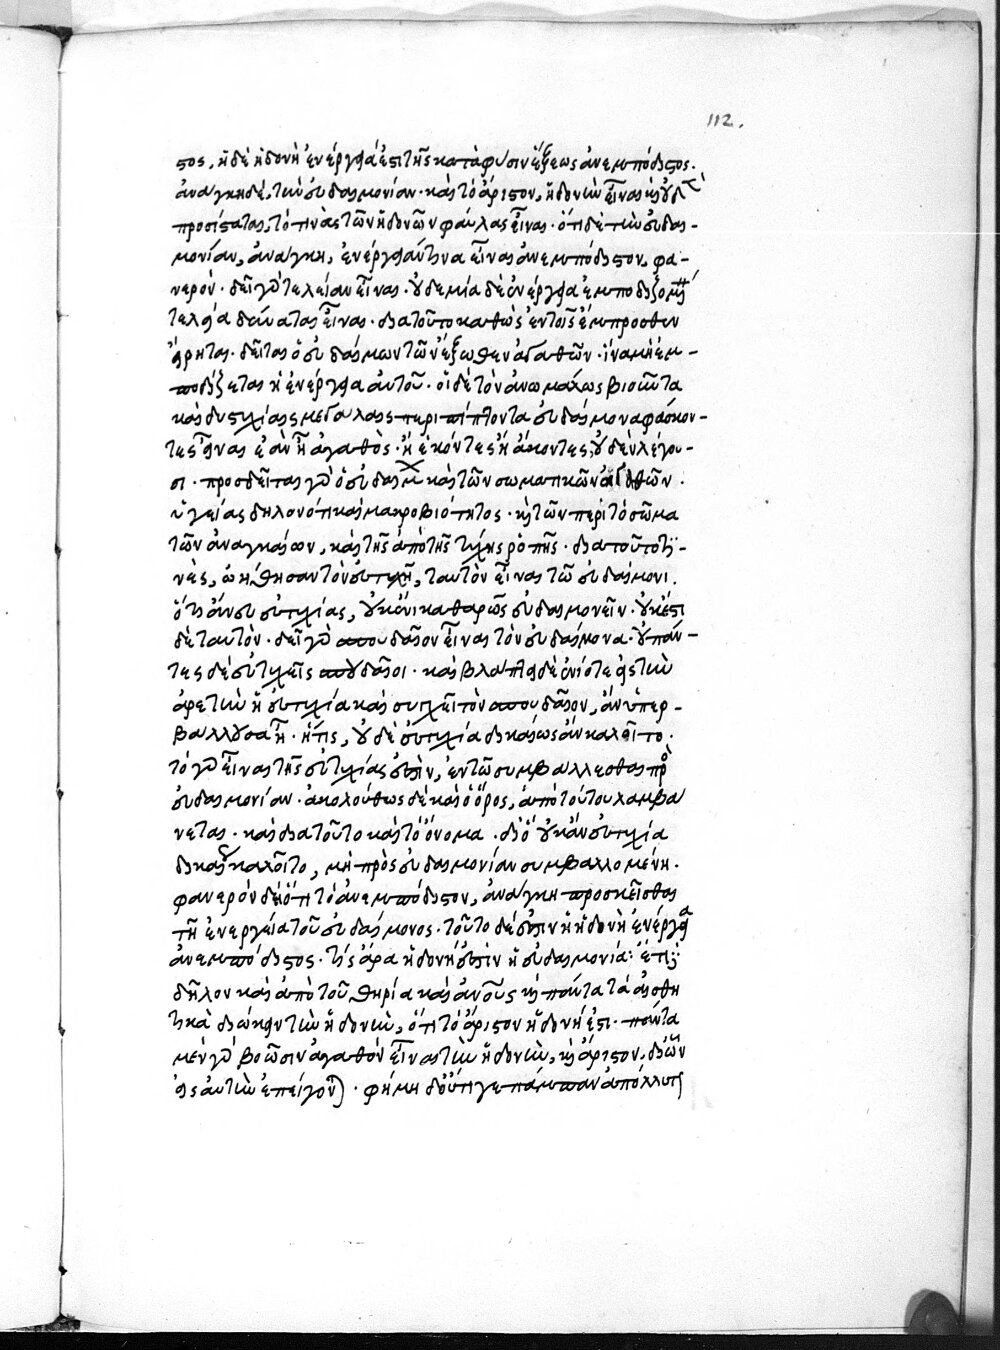 112.
στος. ἡ δὲ ἡδονὴ ἐνέργεια ἐστὶ τῆς κατὰ φύσιν ἕξεως ἀνεμπόδιστος.
ἀνάγκη δὲ, τὴν εὐδαιμονίαν καὶ τὸ ἄριστον, ἡδονὴν εἶναι καὶ οὐδὲν
προσίσταται, τό τινὰς τῶν ἡδονῶν φαύλας εἶναι. ὅτι δὲ τὴν εὐδαι-
μονίαν, ἀνάγκη, ἐνέργειάν τινα εἶναι ἀνεμπόδιστον, φα-
νερόν. δεῖ γὰρ τελείαν εἶναι. οὐδεμία δὲ ἐνέργεια ἐμποδιζομένη
τελεία δύναται εἶναι. διατοῦτο καθὼς ἐν τοῖς ἔμπροσθεν
εἴρηται. δεῖται ὁ εὐδαίμων τῶν ἔξωθεν ἀγαθῶν. ἵνα μὴ ἐμ-
ποδίζεται ἡ ἐνέργεια αὐτοῦ. οἱ δὲ τὸν ἀνωμάλως βιοῦντα
καὶ δυστυχίαις μεγάλαις περιπίπτοντα εὐδαίμονα φάσκον-
τες εἶναι ἐὰν ἦ ἀγαθὸς. ἢ ἑκόντες ἢ ἄκοντες, οὐδὲν λέγου-
σι. προσδεῖται γὰρ ὁ εὐδαίμων καὶ τῶν σωματικῶν ἀγαθῶν.
ὑγείας δηλονότι καὶ μακροβιότητος. καὶ τῶν περὶ τὸ σῶμα
τῶν ἀναγκαίων, καὶ τῆς ἀπὸ τῆς τύχης ῥοπῆς. διατοῦτο τι-
νὲς, ὠήθησαν τὸν εὐτυχῆ, ταυτὸν εἶναι τῶ εὐδαίμονι.
ὅτι ἄνευ εὐτυχίας, οὐκ ἔνι καθαρῶς εὐδαιμονεῖν. οὐκ ἔστι
δὲ ταυτὸν. δεῖ γὰρ σπουδαῖον εἶναι τὸν εὐδαίμονα. οὐ πάν-
τες δὲ εὐτυχεῖς σπουδαῖοι. καὶ βλάπτει δὲ ἐνίοτε εἰς τὴν
ἀρετὴν ἡ εὐτυχία καὶ συγχεῖ τὸν σπουδαῖον, ἂν ὑπερ-
βάλλουσα ἦ. ἥτις, οὐδὲ εὐτυχία δικαίως ἂν καλοῖτο.
τὸ γὰρ εἶναι τῆς εὐτυχίας ἐστὶν, ἐν τῶ συμβάλλεσθαι πρὸς
εὐδαιμονίαν. ἀκολούθως δὲ καὶ ὁ ὅρος, ἀπὸ τούτου λαμβά
νεται. καὶ διατοῦτο καὶ τὸ ὄνομα. διὸ οὐκ ἂν εὐτυχία
δικαίως καλοῖτο, μὴ πρὸς εὐδαιμονίαν συμβαλλομένη.
φανερὸν δὲ ὅτι τὸ ἀνεμπόδιστον, ἀνάγκη προσκεῖσθαι
τῆ ἐνεργεία τοῦ εὐδαίμονος. τοῦτο δέ ἐστιν ἡ ἡδονὴ ἐνέργεια
ἀνεμπόδιστος. τὶς ἄρα ἡδονή ἐστὶν ἡ εὐδαιμονία: ἔτι:
δῆλον καὶ ἀπὸ τοῦ θηρία καὶ ἀνθρώπους καὶ πάντα τὰ αἰσθη
τικὰ διώκειν τὴν ἡδονὴν, ὅτι τὸ ἄριστον ἡδονή ἐστι. πάντα
μὲν γὰρ βοῶσιν ἀγαθὸν εἶναι τὴν ἡδονὴν, καὶ ἄριστον. δι' ὧν
εἰς αὐτὴν ἐπείγονται. φήμη δ' οὔτι γε πάμπαν ἀπόλλυται